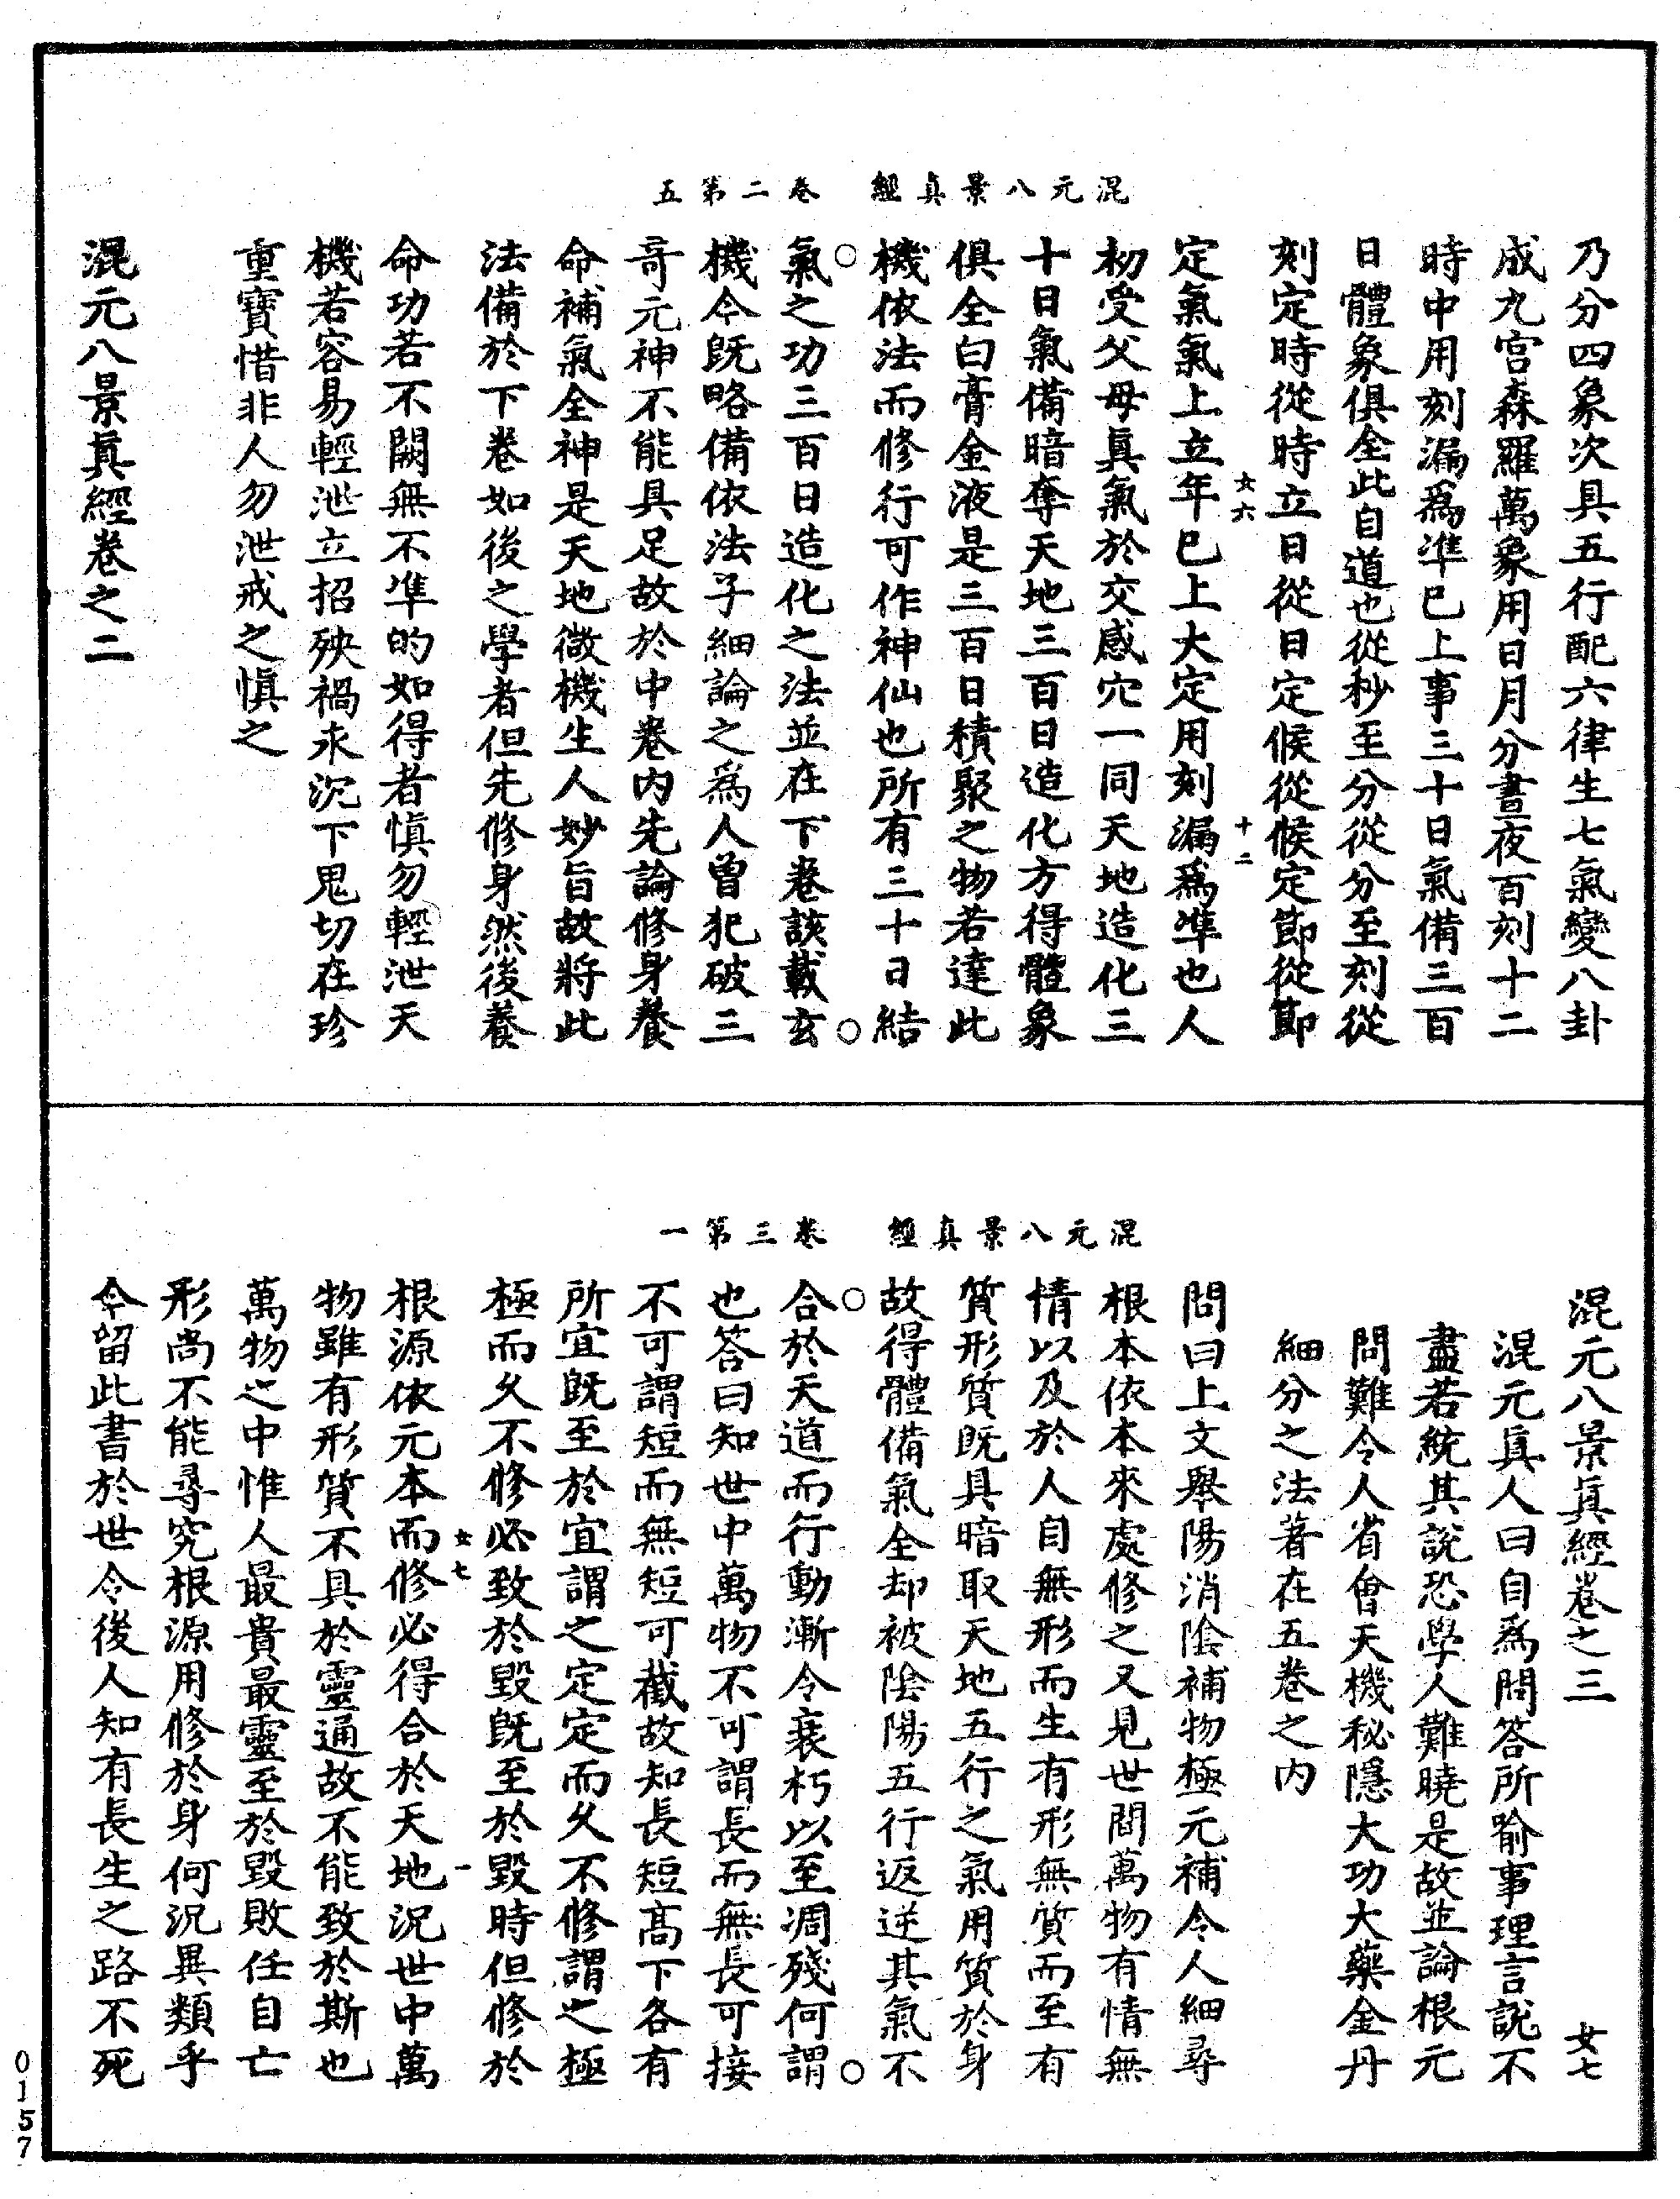 混元八景真經　卷二第五
乃分四象次具五行配六律生七氣變八卦
成九宮森羅萬象用日月分晝夜百刻十二
時中用刻漏爲準巳上事三十日氣備三百
日體象俱全此自道也從秒至分從分至刻從
刻定時從時立日從日定候從候定節從節
女六　十二
定氣氣上立年巳上大定用刻漏爲準也人
初受父母眞氣於交感穴一同天地造化三
十日氣備暗奪天地三百日造化方得體象
俱全白膏金液是三百日積聚之物若達此
機依法而修行可作神仙也所有三十日結
氣之功三百日造化之法並在下卷該載玄
機今旣略備依法子細論之爲人曾犯破三
哥元神不能具足故於中卷內先論修身養
命補氣全神是天地微機生人妙旨故將此
法備於下卷如後之學者但先修身然後養
命功若不闕無不準的如得者愼勿輕泄天
機若容易輕泄立招殃禍永沉下鬼切在珍
重寶惜非人勿泄戒之愼之
混元八景眞經卷之二
混元八景真經　卷三第一
混元八景眞經卷之三　女七
混元眞人曰自爲問答所喻事理言說不
盡若統其說恐學人難曉是故並論根元
問難令人省會天機秘隱大功大藥金丹
細分之法著在五卷之內
問曰上文舉陽消陰補物極元補令人細尋
根本依本來處修之又見世間萬物有情無
情以及於人自無形而生有形無質而至有
質形質旣具暗取天地五行之氣用質於身
故得體備氣全却被陰陽五行返逆其氣不
合於天道而行動漸令衰朽以至凋殘何謂
也答曰知世中萬物不可謂長而無長可接
不可謂短而無短可截故知長短高下各有
所宜旣至於宜謂之定定而久不修謂之極
極而久不修必致於毀旣至於毀時但修於
女七　一
根源依元本而修必得合於天地況世中萬
物雖有形質不具於靈通故不能致於斯也
萬物之中惟人最貴最靈至於毀敗任自亡
形尚不能尋究根源用修於身何況異類乎
今留此書於世令後人知有長生之路不死
0157